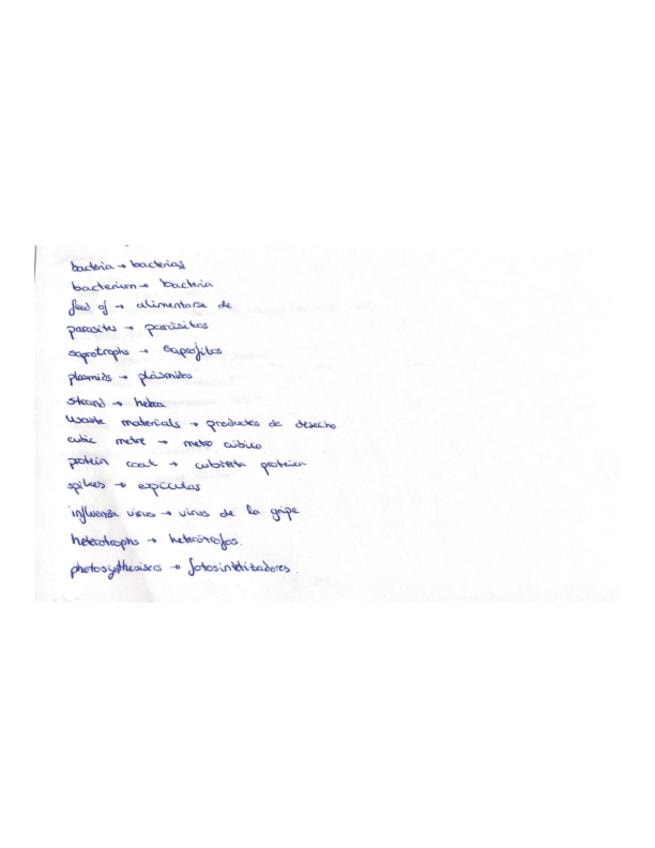 bacteria → bacterias
bacterium → bacteria
feed of → alimentarse de
parasites → parásitos
saprotrophs → saprofitos
plasmids → plásmido
strand → hebra
waste materials → productos de desecho
cubic metre → metro cúbico
protein coat → cubierta proteica
spikes → espículas
influenza virus → virus de la gripe
heterotrophs → heterótrofos.
photosynthesisers → fotosintetizadores.